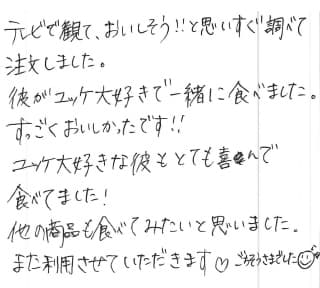 テレビで観て、おいしそう!!と思いすぐ調べて
注文しました。
彼がユッケ大好きで一緒に食べました。
すっごくおいしかったです!!
ユッケ大好きな彼もとても喜んで
食べてました!
他の商品も食べてみたいと思いました。
また利用させていただきます♡ ごちそうさまでした